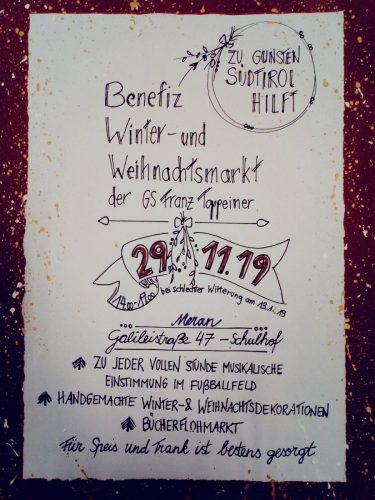 ZU GUNSTEN
SÜDTIROL
HILFT
Benefiz
Winter- und
Weihnachtsmarkt
der GS Franz Tappeiner
29.11.19
14.00-17.00
bei schlechter Witterung am 13.12.19
Meran
Galileistraße 47 - Schulhof
ZU JEDER VOLLEN STUNDE MUSIKALISCHE
EINSTIMMUNG IM FUßBALLFELD
HANDGEMACHTE WINTER- & WEIHNACHTSDEKORATIONEN
BÜCHERFLOHMARKT
Für Speis und Trank ist bestens gesorgt